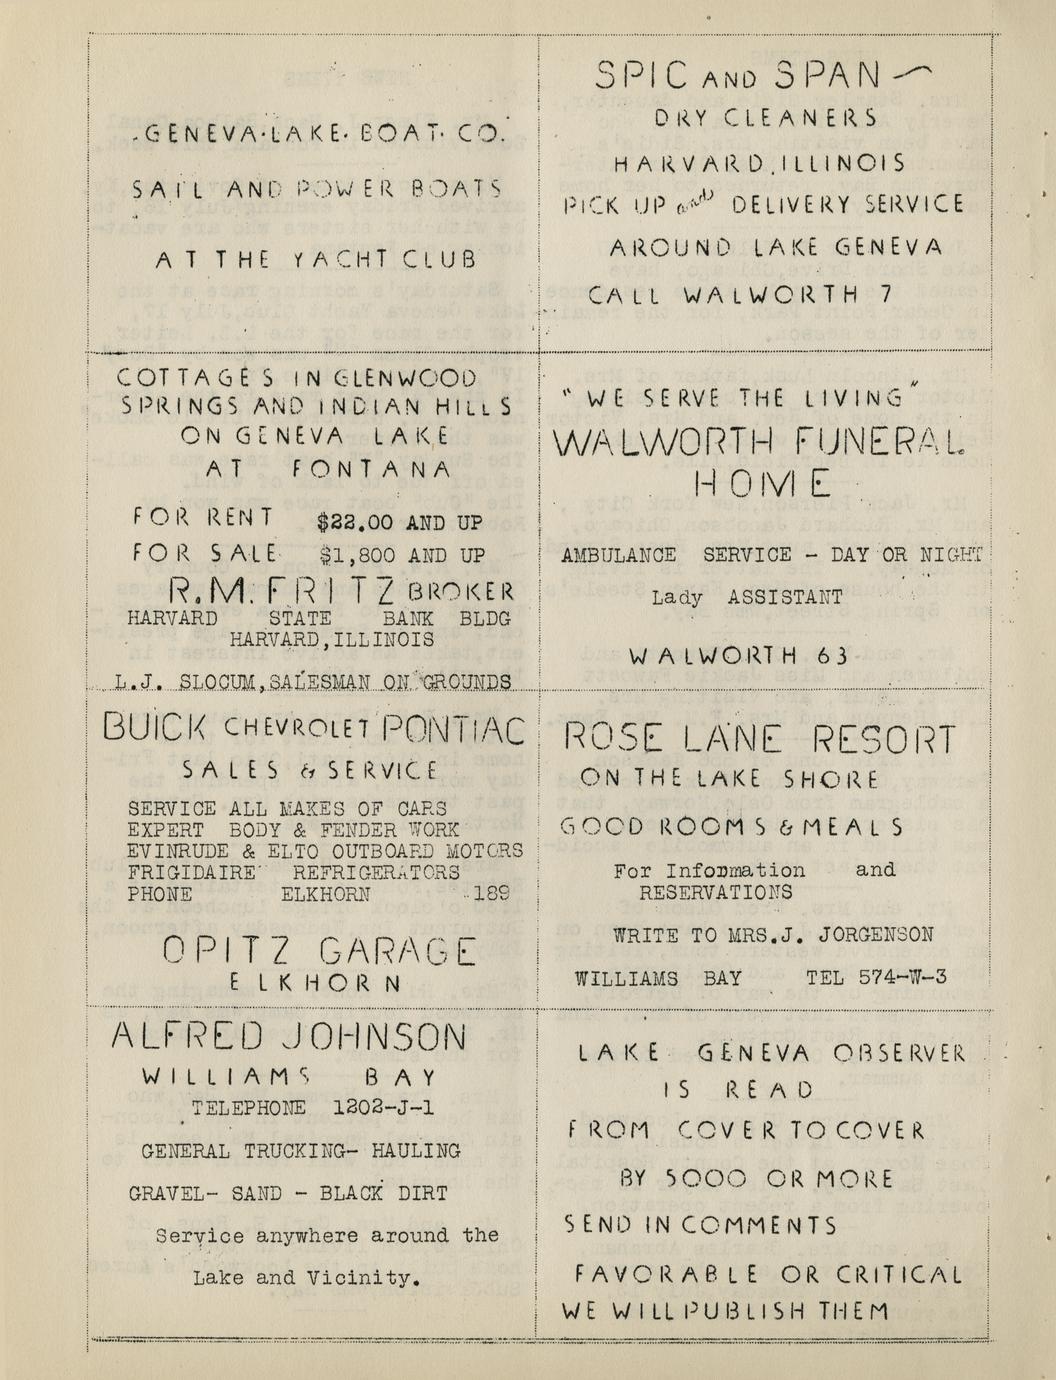 ·GENEVA·LAKE·BOAT·CO.
SAIL AND POWER BOATS
AT THE YACHT CLUB
SPIC AND SPAN
DRY CLEANERS
HARVARD, ILLINOIS
PICK UP and DELIVERY SERVICE
AROUND LAKE GENEVA
CALL WALWORTH 7
COTTAGES IN GLENWOOD
SPRINGS AND INDIAN HILLS
ON GENEVA LAKE
AT FONTANA
FOR RENT $22.00 AND UP
FOR SALE $1,800 AND UP
R.M. FRITZ BROKER
HARVARD STATE BANK BLDG
HARVARD, ILLINOIS
L.J. SLOCUM, SALESMAN ON GROUNDS
"WE SERVE THE LIVING"
WALWORTH FUNERAL
HOME
AMBULANCE SERVICE - DAY OR NIGHT
Lady ASSISTANT
WALWORTH 63
BUICK CHEVROLET PONTIAC
SALES & SERVICE
SERVICE ALL MAKES OF CARS
EXPERT BODY & FENDER WORK
EVINRUDE & ELTO OUTBOARD MOTORS
FRIGIDAIRE REFRIGERATORS
PHONE ELKHORN 189
OPITZ GARAGE
ELKHORN
ROSE LANE RESORT
ON THE LAKE SHORE
GOOD ROOMS & MEALS
For Information and
RESERVATIONS
WRITE TO MRS.J. JORGENSON
WILLIAMS BAY TEL 574-W-3
ALFRED JOHNSON
WILLIAMS BAY
TELEPHONE 1202-J-1
GENERAL TRUCKING- HAULING
GRAVEL- SAND - BLACK DIRT
Service anywhere around the
Lake and Vicinity.
LAKE GENEVA OBSERVER
IS READ
FROM COVER TO COVER
BY 5000 OR MORE
SEND IN COMMENTS
FAVORABLE OR CRITICAL
WE WILL PUBLISH THEM